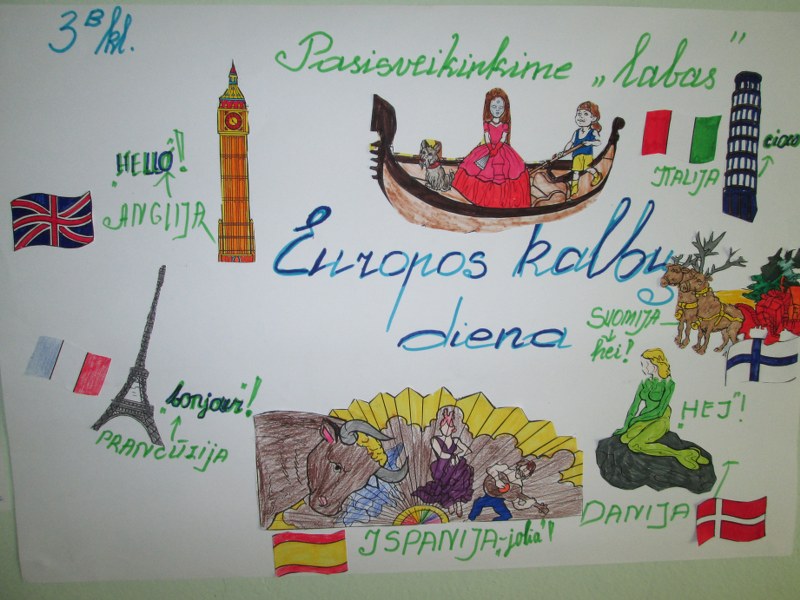 3 B kl.
Pasisveikinkime „labas”
„HELLO”!
ANGLIJA
ITALIJA
ciao
Europos kalbų
diena
SUOMIJA
hei!
„bonjour”!
PRANCŪZIJA
„HEJ”!
DANIJA
ISPANIJA - „jolia”!